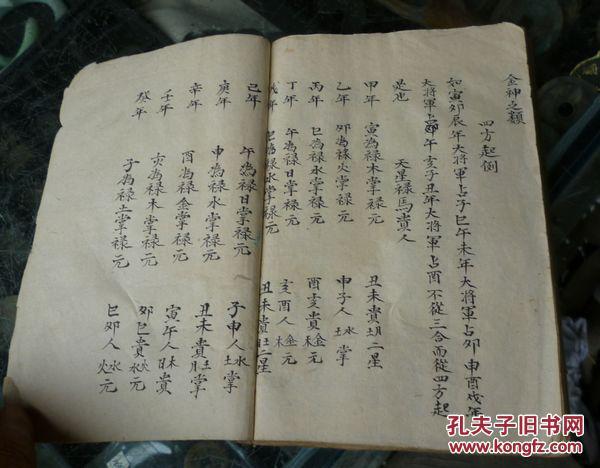 金神之類
四方起例
如寅夘辰年大將軍占子巳午未年大將軍占夘申酉戌年
大將軍占午亥子丑年大將軍占酉不從三合而從四方起
是也
天星祿馬貴人
甲年 寅為祿木掌祿元 丑未貴
乙年 夘為祿火掌祿元 申子人
丙年 巳為祿水掌祿元 酉亥貴
丁年 午為祿日掌祿元 亥酉人
戊年 巳為祿水掌祿元 丑未貴
己年 午為祿日掌祿元 子申人
庚年 申為祿水掌祿元 丑未貴
辛年 酉為祿金掌祿元 寅午人
壬年 亥為祿木掌祿元 夘巳貴
癸年 子為祿土掌祿元 巳夘人
孔夫子旧书网